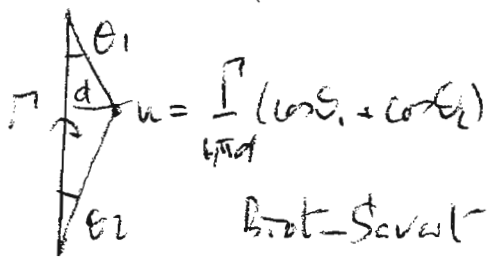 θ1
Γ d u = Γ/4πd (cosθ1 + cosθ2)
θ2 Biot-Savart